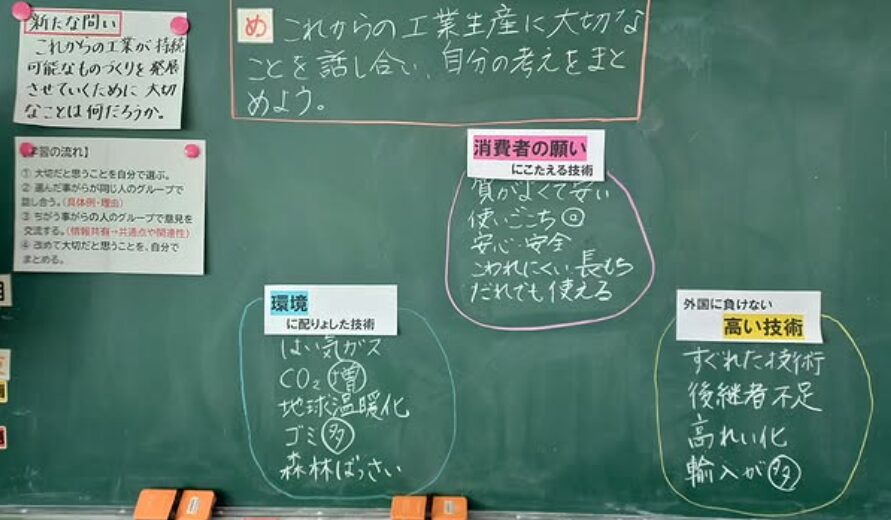 新たな問い
これからの工業が持続
可能なものづくりを発展
させていくために大切
なことは何だろうか。
め これからの工業生産に大切な
ことを話し合い、自分の考えをまと
めよう。
学習の流れ】
① 大切だと思うことを自分で選ぶ。
② 選んだ事がらが同じ人のグループで
話し合う。(具体例・理由)
③ ちがう事がらの人のグループで意見を
交流する。(情報共有→共通点や関連性)
④ 改めて大切だと思うことを、自分で
まとめる。
消費者の願い
にこたえる技術
質がよくて安い
使いごこち◎
安心・安全
こわれにくい長もち
だれでも使える
環境
に配りょした技術
はい気ガス
CO₂ 増
地球温暖化
ゴミ 多
森林ばっさい
外国に負けない
高い技術
すぐれた技術
後継者不足
高れい化
輸入が多